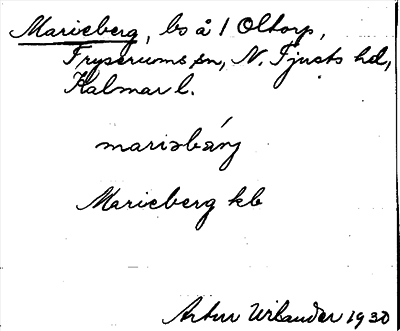 Marieberg, bs å 1 Oltorp,
Fryserums sn, N. Tjusts hd,
Kalmar l.
mariəbærj
Marieberg kb
Artur Urbander 1930